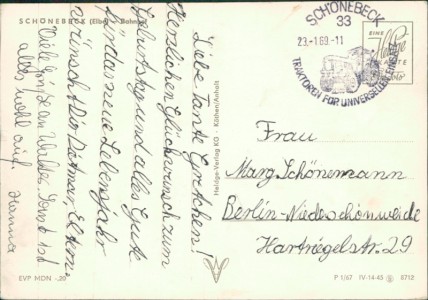 SCHÖNEBECK (Elbe) Bahnhof
Liebe Tante Gretchen!
Herzlichen Glückwunsch zum
Geburtstag und alles Gute
für das neue Lebensjahr
wünscht Dir Dietmar, Eltern.
Viele Grüße an Walter. Sonst ist
alles wohl auf. Hanna
EVP MDN -,20
Heldge-Verlag KG · Köthen/Anhalt
SCHÖNEBECK
33
23.-1.69.-11
TRAKTOREN FÜR UNIVERSELLEN EINSATZ
EINE
Heldge
KARTE
Frau
Marg. Schönemann
Berlin-Niederschönweide
Hartriegelstr. 29
P 1/67 IV-14-45 8712